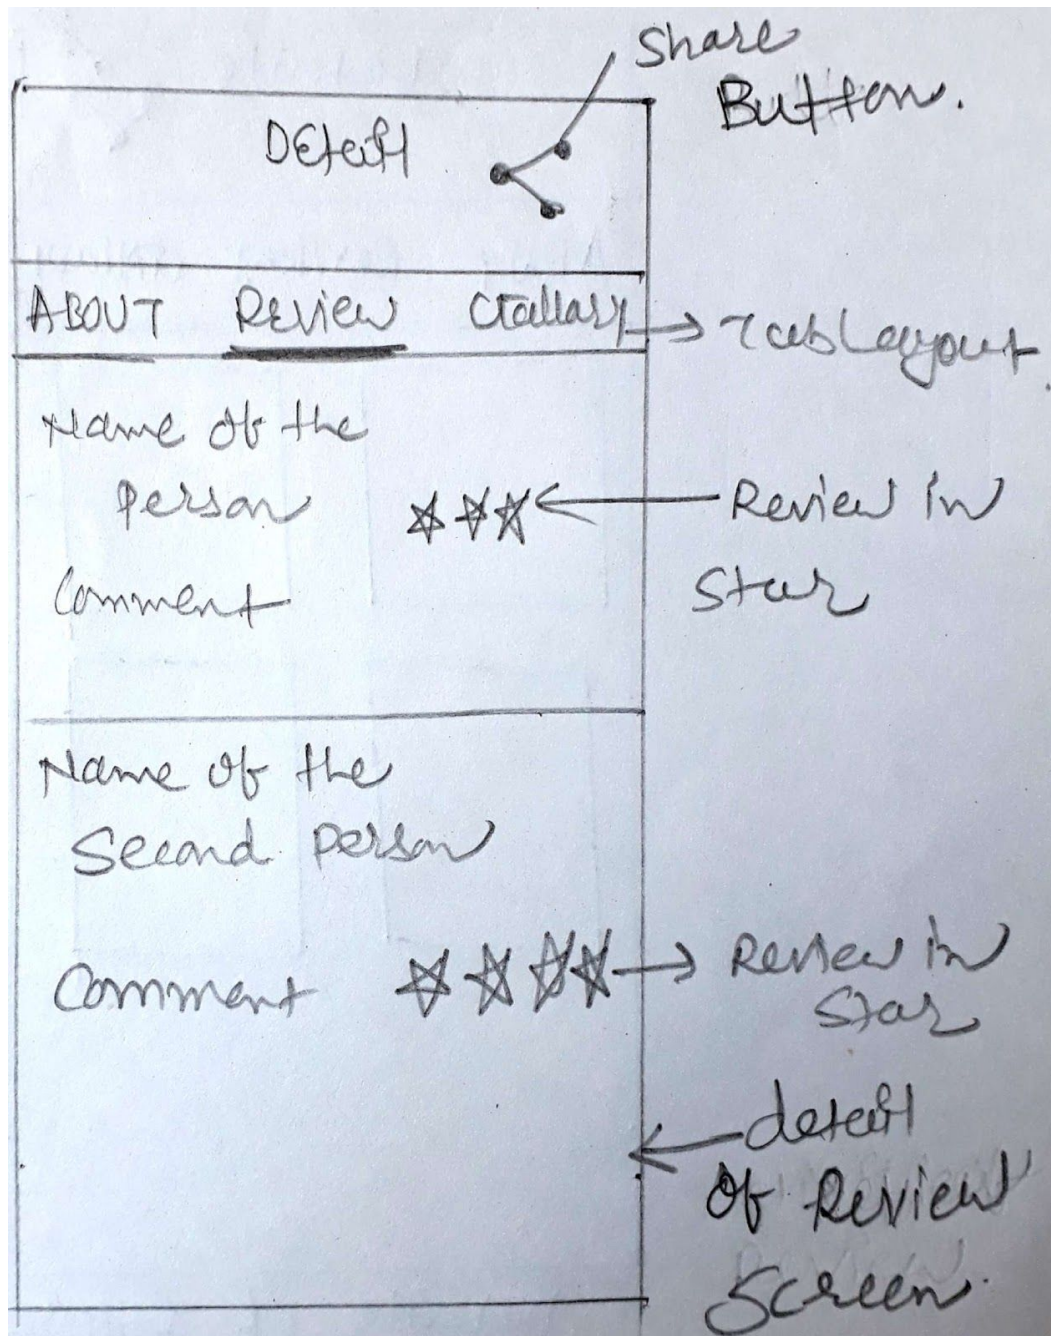 Share
Button.
Detail
ABOUT Review Gallary
Tab Layout
Name of the
Person
Review in
Star
Comment
Name of the
Second Person
Comment
Review in
Star
detail
Of Review
Screen.